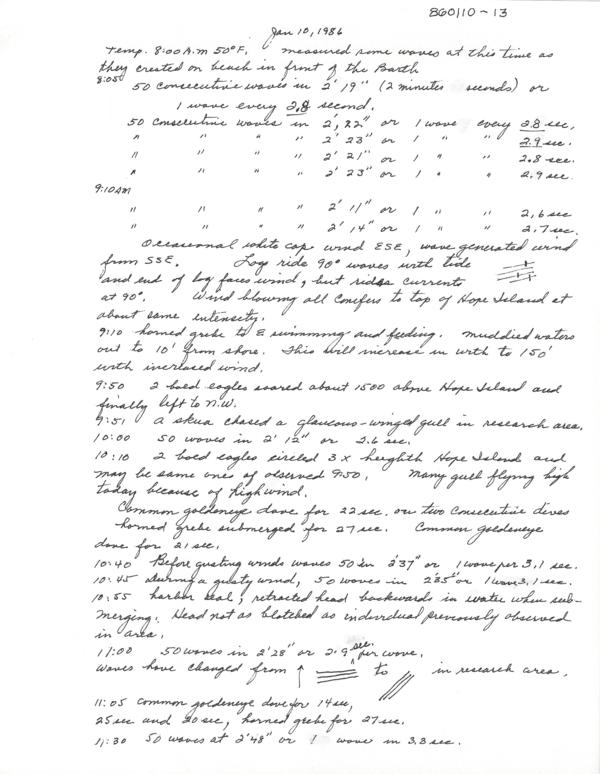 860110-13
Jan 10, 1986
Temp. 8:00 A.M 50°F. measured some waves at this time as
they crested on beach in front of the Booth
8:05
50 consecutive waves in 2' 19" (2 minutes seconds) or
1 wave every 2.8 second.
50 Consecutive waves in 2', 22" or 1 wave every 2.8 sec.
" " " " 2' 23" or 1 " " 2.9 sec.
" " " " 2' 21" or 1 " " 2.8 sec.
" " " " 2' 23" or 1 " " 2.9 sec.
9:10 AM
" " " " 2' 11" or 1 " " 2.6 sec
" " " " 2' 14" or 1 " " 2.7 sec.
Occasional white cap wind ESE, wave generated wind
from SSE. Log ride 90° waves with tide
and end of log faces wind, but rides currents
at 90°. Wind blowing all conifers to top of Hope Island at
about same intensity.
9:10 horned grebe to E swimming and feeding. muddied waters
out to 10' from shore. This will increase in width to 150'
with increased wind.
9:50 2 bald eagles soared about 1500 above Hope Island and
finally left to N.W.
9:51 a skua chased a glaucous-winged gull in research area.
10:00 50 waves in 2' 12" or 2.6 sec.
10:10 2 bald eagles circled 3 x heighth Hope Island and
may be same ones of observed 9:50. Many gull flying high
today because of high wind.
Common goldeneye dove for 22 sec. on two consecutive dives
horned grebe submerged for 27 sec. Common goldeneye
dove for 21 sec.
10:40 Before gusting winds waves 50 in 2'37" or 1 wave per 3.1 sec.
10:45 during a gusty wind, 50 waves in 2'35" or 1 wave 3.1 sec.
10:55 harbor seal, retracted head backwards in water when sub-
merging. Head not as blotched as individual previously observed
in area.
11:00 50 waves in 2'28" or 2.9 sec. per wave.
Waves have changed from to in research area.
11:05 common goldeneye dove for 14 sec,
25 sec and 20 sec, horned grebe for 27 sec.
11:30 50 waves at 2'48" or 1 wave in 3.3 sec.